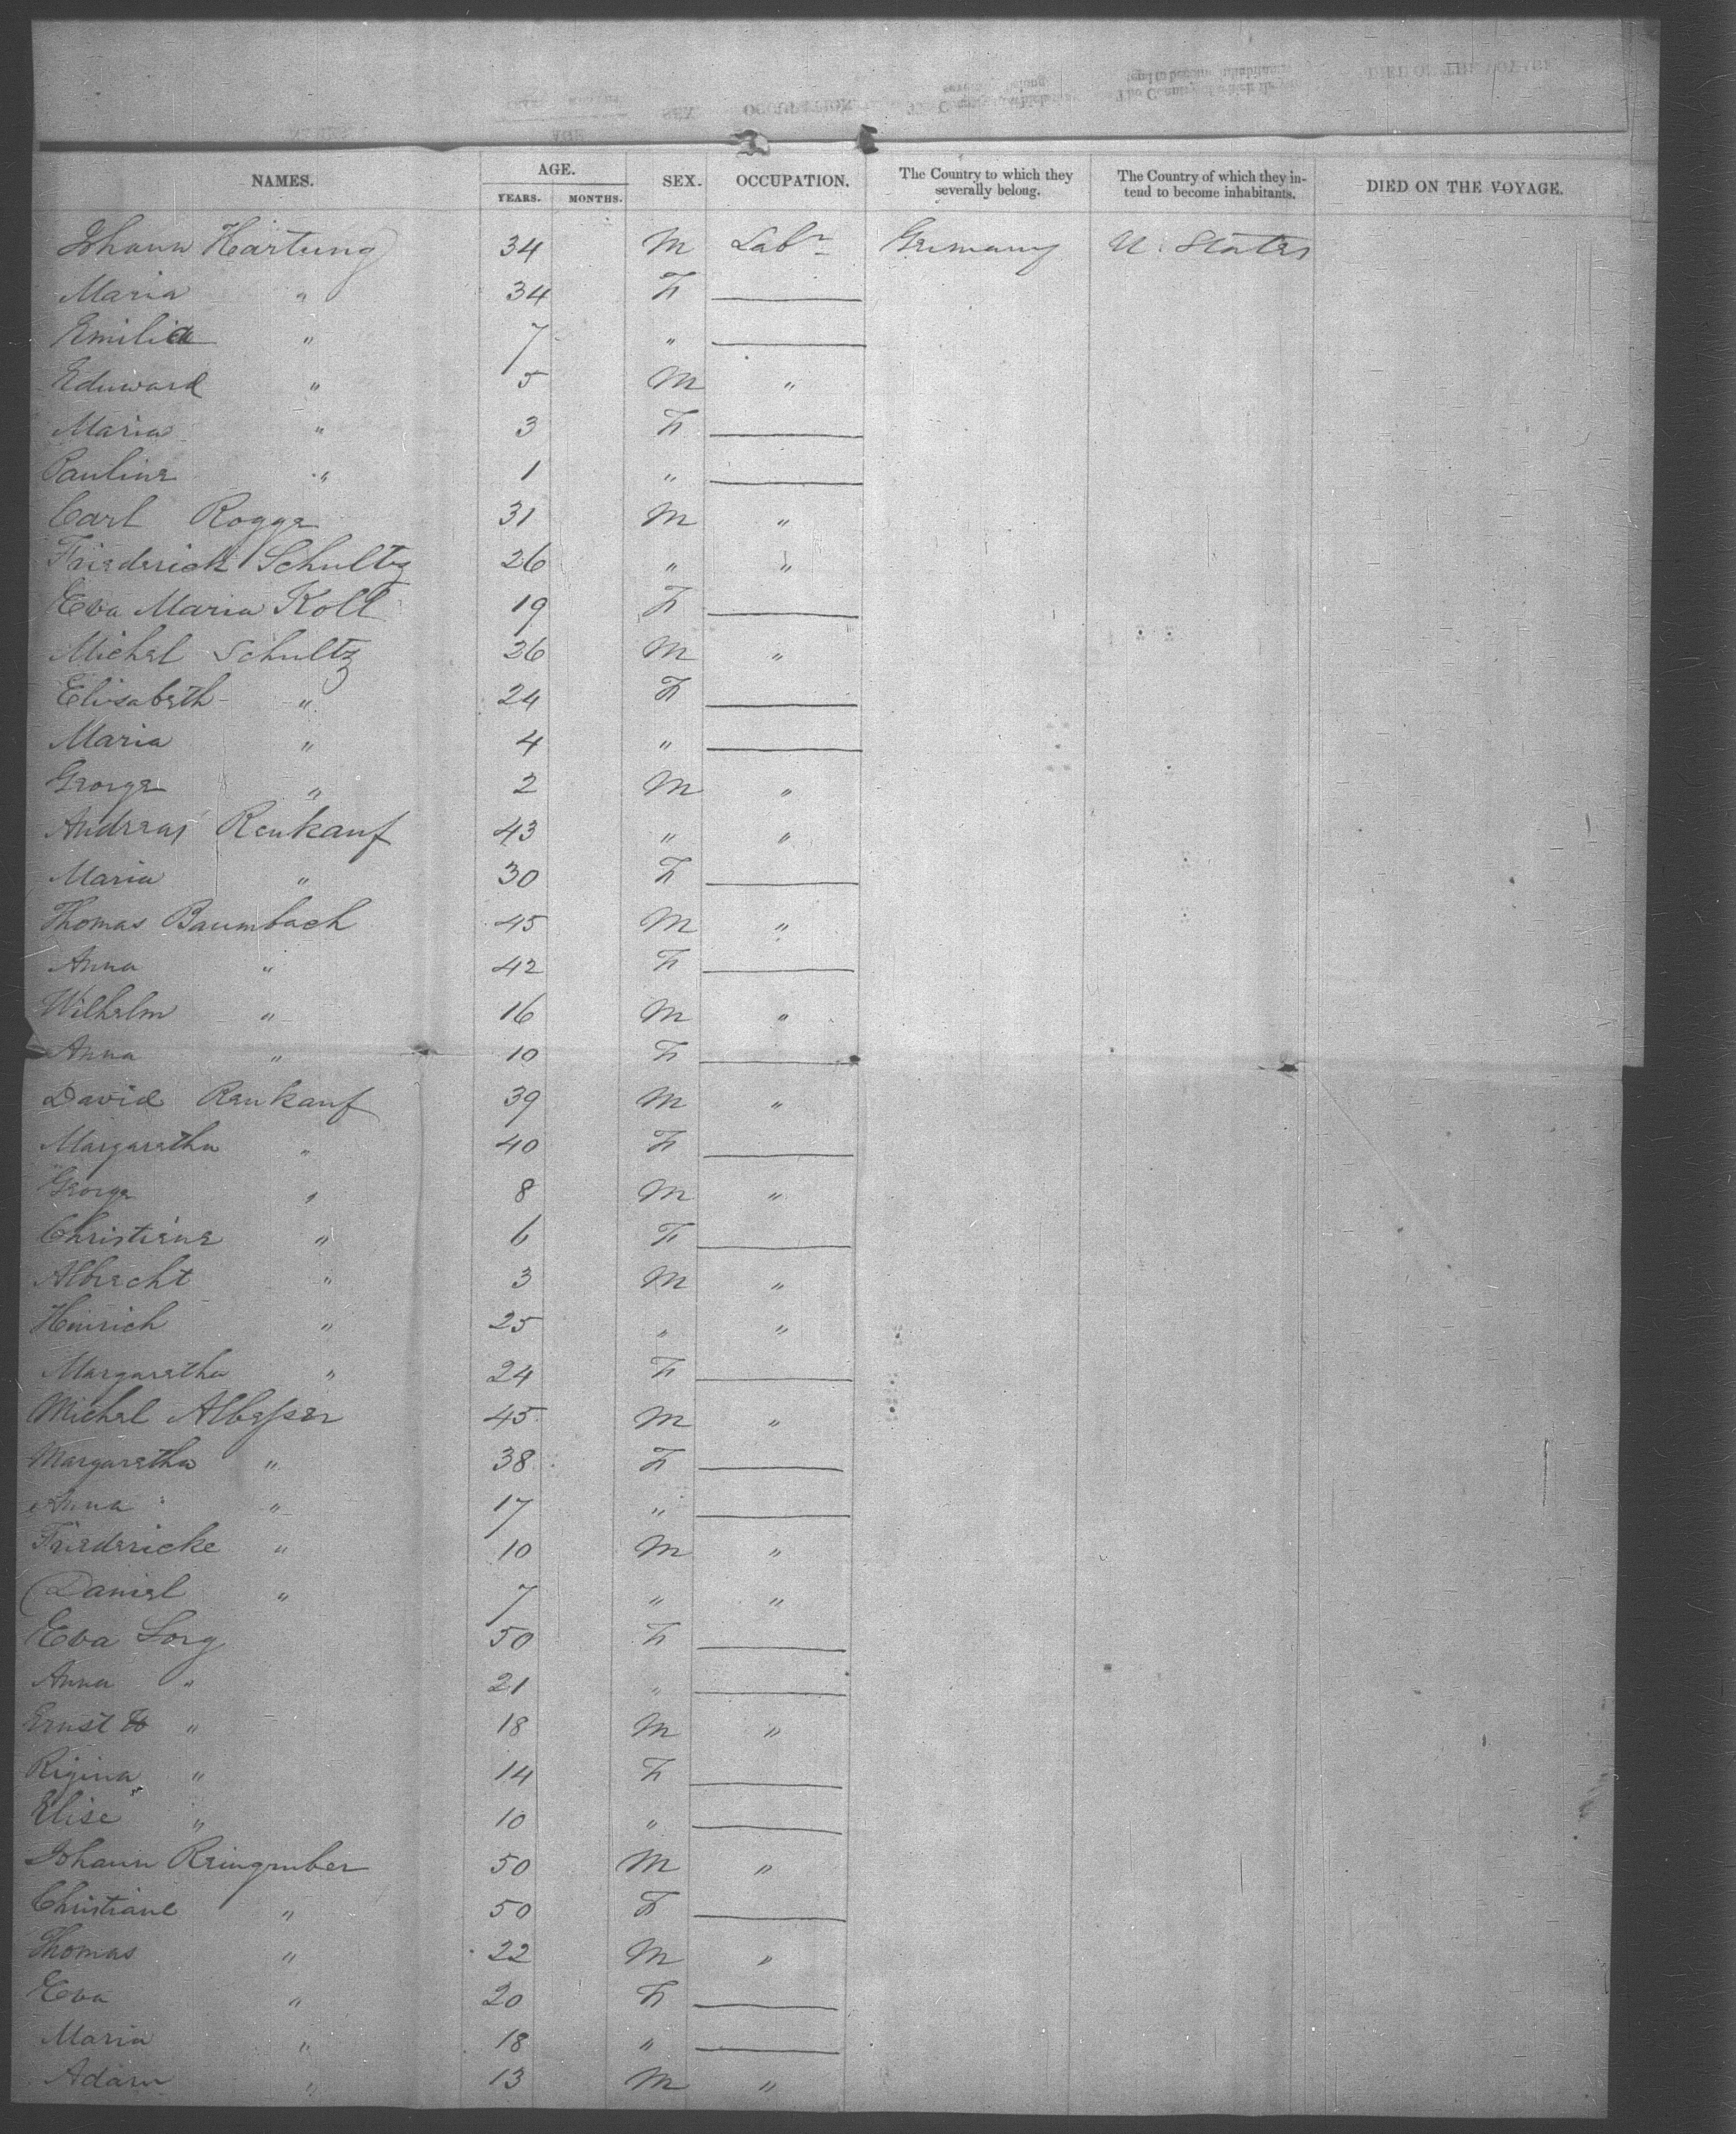 NAMES. AGE. SEX. OCCUPATION. The Country to which they severally belong. The Country of which they intend to become inhabitants. DIED ON THE VOYAGE.
YEARS. MONTHS.
Johann Hartung 34 M Labr Germany U. States
Maria " 34 F
Emilia " 7 "
Eduward " 5 M "
Maria " 3 F
Pauline " 1 "
Carl Rogge 31 M "
Friederick Schultz 26 " "
Eva Maria Koll 19 F
Michel Schultz 26 M "
Elisabeth " 24 F
Maria " 4 "
George " 2 M "
Andreas Renkauf 43 " "
Maria " 30 F
Thomas Baumbach 45 M "
Anna " 42 F
Wilhelm " 16 M "
Anna " 10 F
David Renkauf 39 M "
Margaretha " 40 F
George " 8 M "
Christiene " 6 F
Albrecht " 3 M "
Heinrich " 25 " "
Margaretha " 24 F
Michel Albesser 45 M "
Margaretha " 38 F
Anna " 17 "
Friedericke " 10 M "
Daniel " 7 " "
Eva Sorg 50 F
Anna " 21 "
Ernst " 18 M "
Rigina " 14 F
Elise " 10 "
Johann Reingruber 50 M "
Christiane " 50 F
Thomas " 22 M "
Eva " 20 F
Maria " 18 "
Adam " 13 M "